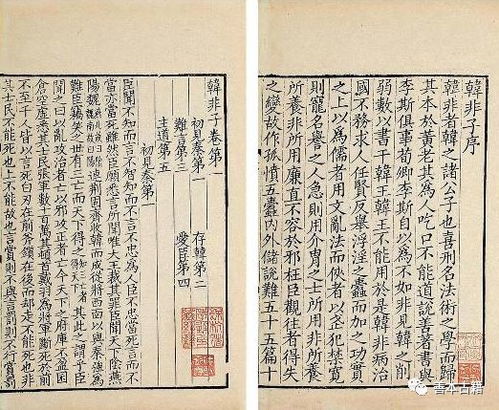 韓非子序
韓非者韓之諸公子也喜刑名法術之學而歸
其本於黄老其為人吃口不能道說善著書與
李斯俱事荀卿李斯自以為不如非見韓之削
弱數以書干韓王韓王不能用於是韓非病治
國不務求人任賢反舉浮淫之蠹而加之功實
之上以為儒者用文亂法而俠者以武犯禁寬
則寵名譽之人急則用介胄之士所用非所養
所養非所用廉直不容於邪枉臣觀往者得失
之變故作孤憤五蠹内外儲說難五十五篇十
韓非子卷第一
初見秦第一 存韓第二
難言第三 愛臣第四
主道第五
初見秦第一
臣聞不知而言不智知而不言不忠為人臣不忠當死言而不
當亦當死雖然臣願悉言所聞唯大王裁其罪臣聞天下陰燕
陽魏連荆固齊收韓而成從將西面以與秦強為
難臣竊笑之世有三亡而天下得之其此之謂乎臣
聞之曰以亂攻治者亡以邪攻正者亡今天下之府庫不盈囷
倉空虛悉其士民張軍數十百萬其頓首戴羽為將軍斷死於前
不至千人皆以言死白刃在前斧鑕在後而却走不能死也非
其士民不能死也上不能故也言賞則不與言罰則不行賞罰
善本古籍